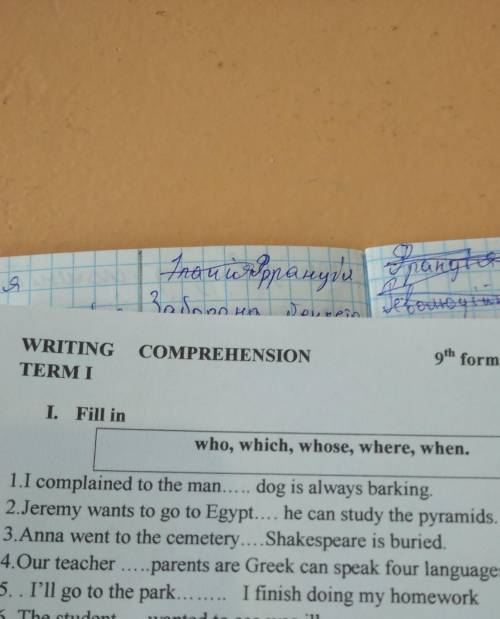 я Франція
WRITING COMPREHENSION 9th form
TERM I
I. Fill in
who, which, whose, where, when.
1.I complained to the man..... dog is always barking.
2.Jeremy wants to go to Egypt.... he can study the pyramids.
3.Anna went to the cemetery....Shakespeare is buried.
4.Our teacher .....parents are Greek can speak four language
5. . I'll go to the park........ I finish doing my homework
6. The student